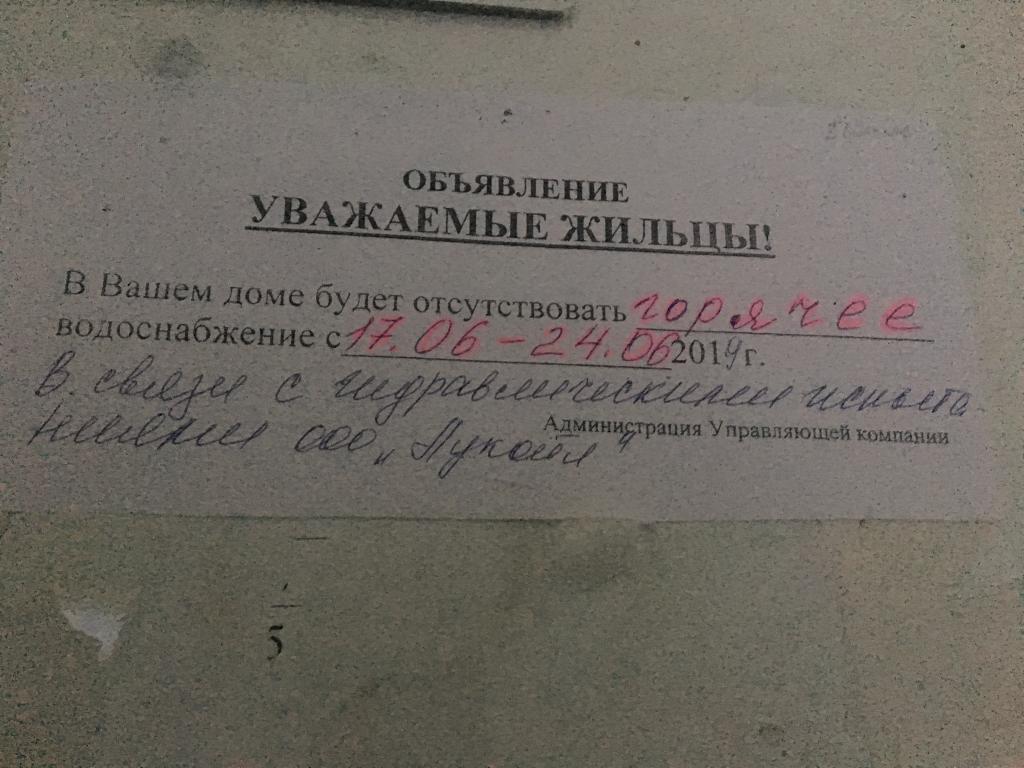 ОБЪЯВЛЕНИЕ
УВАЖАЕМЫЕ ЖИЛЬЦЫ!
В Вашем доме будет отсутствовать горячее
водоснабжение с 17.06 - 24.06 2019г.
В связи с гидравлическими испыта
ниями ооо „Лукойл"
Администрация Управляющей компании
5